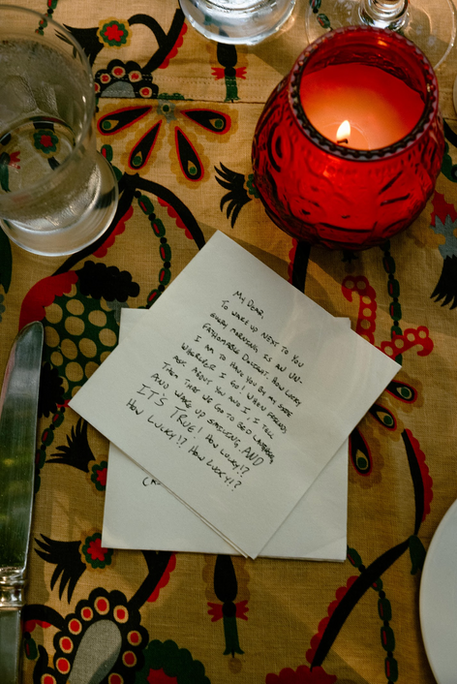 My Dear,
To wake up next to you
every morning, is an un-
fathomable delight. How lucky
I am to have you by my side
wherever I go! When friends
ask about you and I, I tell
them that we go to bed laughing
and wake up smiling. AND
IT'S TRUE! How lucky!?
How lucky!? How lucky!?